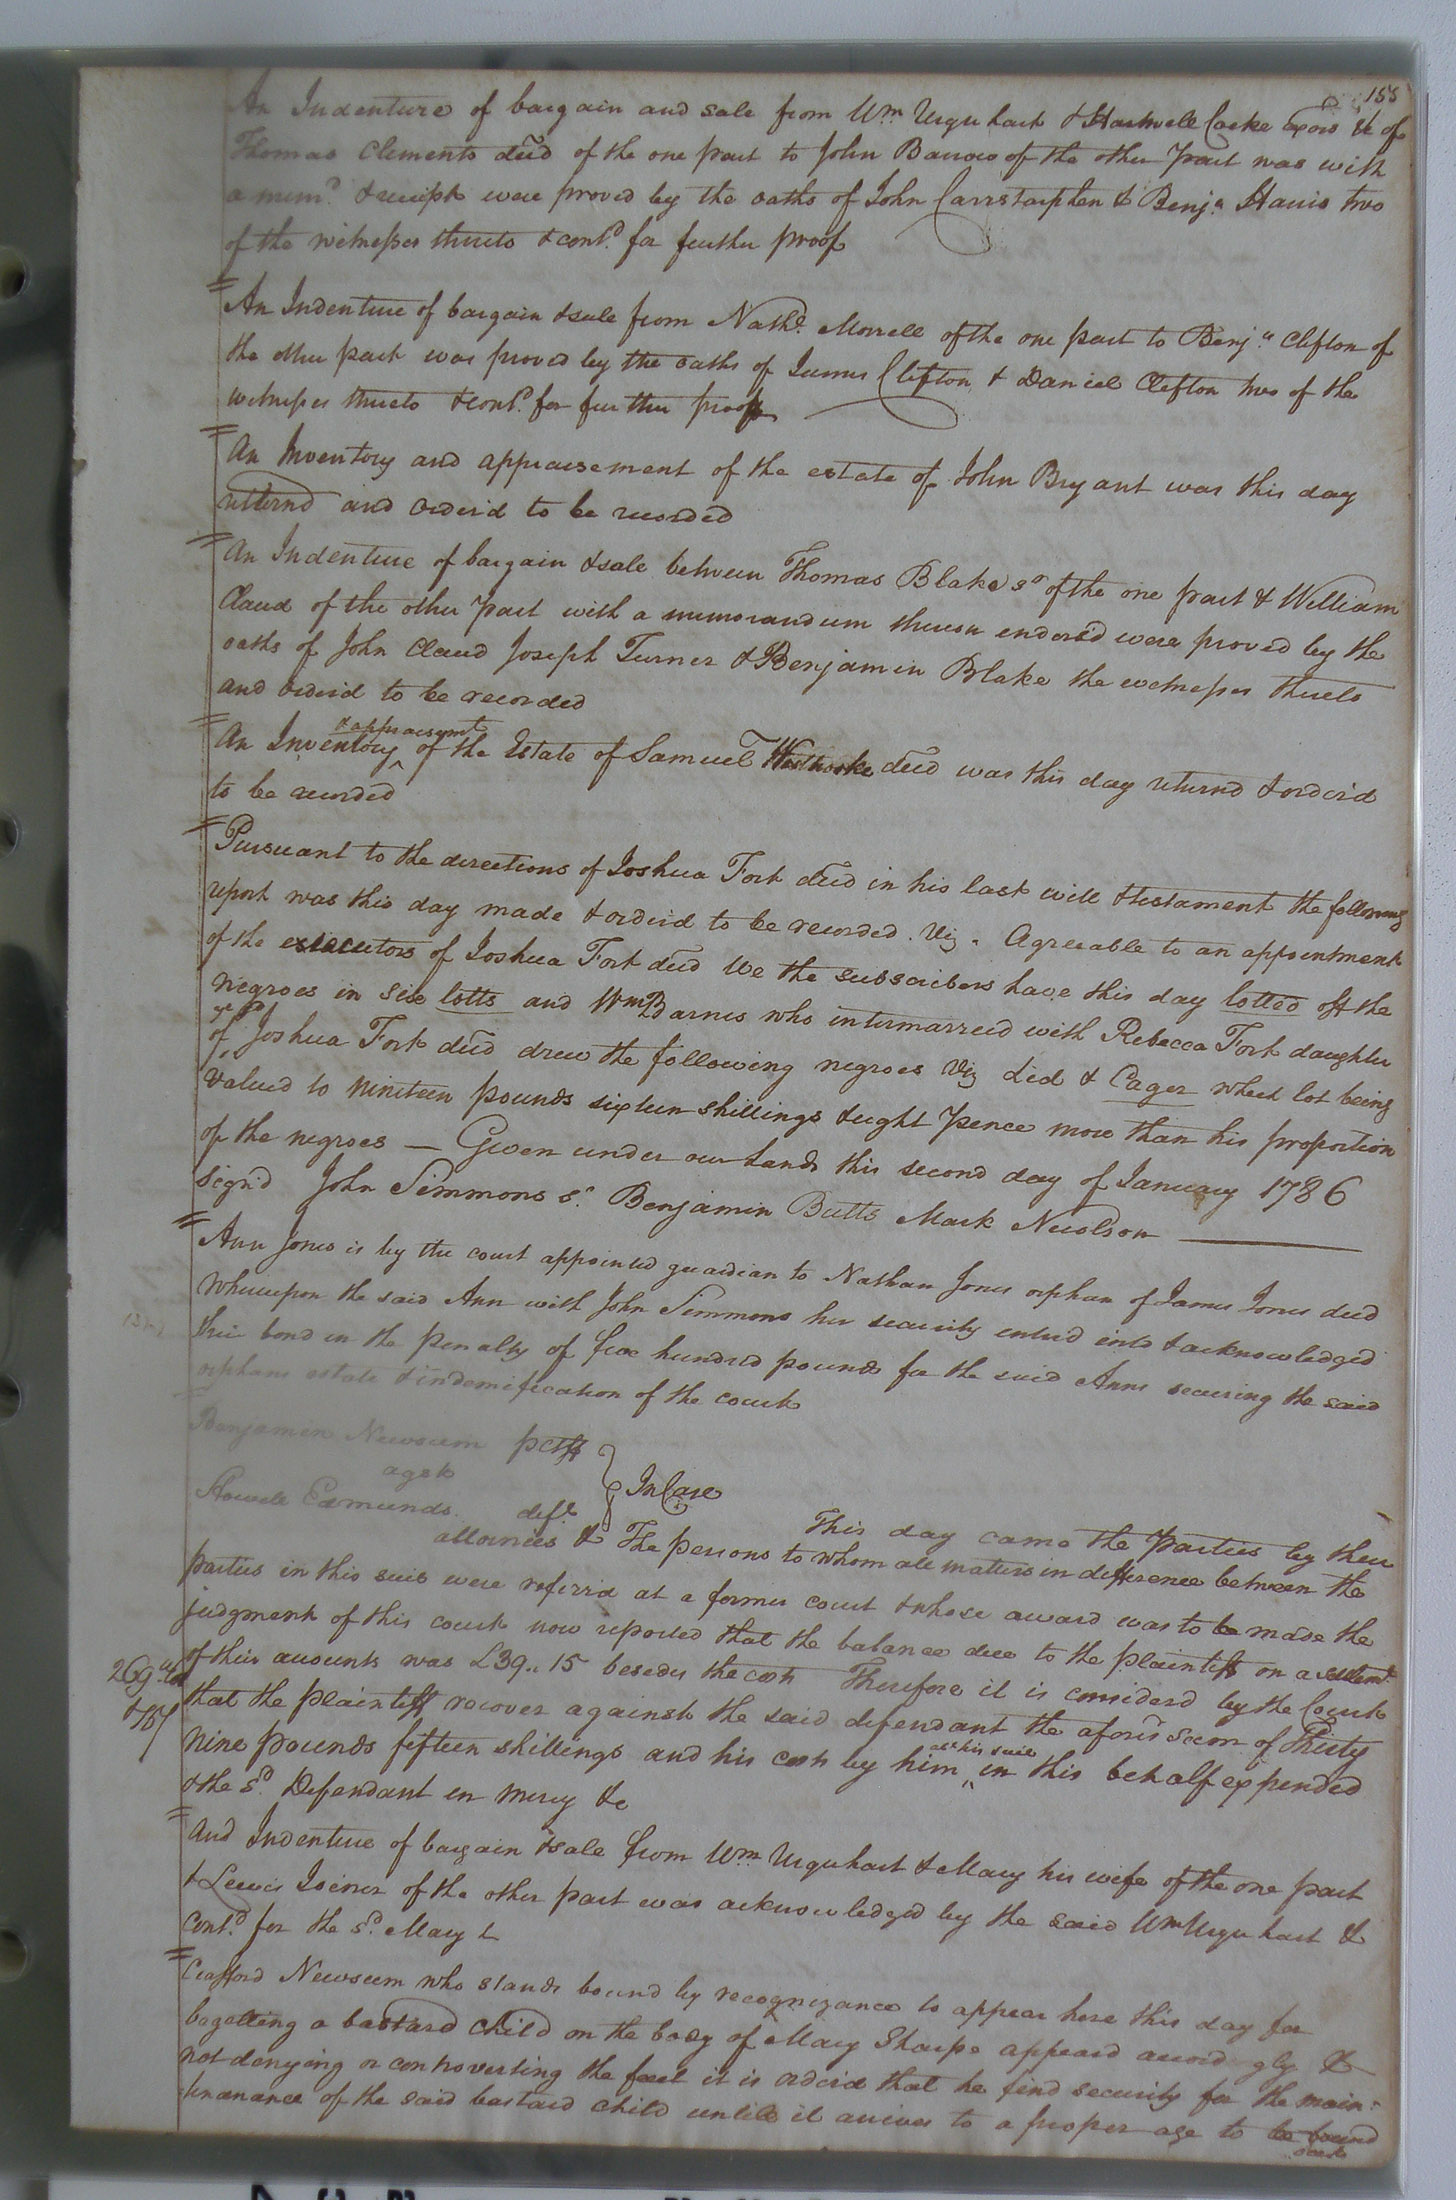 155
An Indenture of bargain and sale from Wm Urquhart & Hartwell Cocke Exors &c of
Thomas Clements decd of the one part to John Barrow of the other part was with
a memd. & receipt were proved by the oaths of John Carrstarphen & Benja. Harris two
of the witnesses thereto & contd. for further proof
An Indenture of bargain & sale from Nathl. Morrell of the one part to Benja. Clifton of
the other part was proved by the oaths of James Clifton & Daniel Clifton two of the
witnesses thereto & contd. for further proof
An Inventory and appraisement of the estate of John Bryant was this day
returnd and orderd to be recorded
An Indenture of bargain & sale between Thomas Blake Sr of the one part & William
Claud of the other part with a memorandum thereon endorsd were proved by the
oaths of John Claud Joseph Turner & Benjamin Blake the witnesses thereto
and orderd to be recorded
& appraisemt
An Inventory of the Estate of Samuel Westbrooke decd was this day returnd & orderd
to be recorded
Pursuant to the directions of Joshua Fort decd in his last will & testament the following
report was this day made & orderd to be recorded. Viz. Agreeable to an appointment
of the executors of Joshua Fort decd We the subscribers have this day lotted off the
negroes in six lotts and Wm Barnes who intermarried with Rebecca Fort daughter
of Joshua Fort decd drew the following negroes Viz Lid & Cager which lot being
valued to nineteen pounds sixteen shillings & eight pence more than his proportion
of the negroes — Given under our hands this second day of January 1786
Sign'd John Simmons Sr. Benjamin Butts Mark Nicolson
Ann Jones is by the court appointed guardian to Nathan Jones orphan of James Jones decd
Whereupon the said Ann with John Simmons her security enterd into & acknowledged
their bond in the penalty of five hundred pounds for the said Anns securing the said
orphans estate & indemnification of the court
Benjamin Newsum pltff
agst
Howell Edmunds deft.
In Case
This day came the Parties by their
attornies & The persons to whom all matters in difference between the
parties in this suit were referrd at a former court & whose award was to be made the
judgment of this court now reported that the balance due to the plaintiff on a settlemt.
of their accounts was £39..15 besides the costs Therefore it is considerd by the Court
that the plaintiff recover against the said defendant the aforesd Sum of Thirty
nine pounds fifteen shillings and his costs by him in this behalf expended
abt his suit
& the Sd. Defendant in mercy &c
And Indenture of bargain & sale from Wm Urquhart & Mary his wife of the one part
& Lewis Joiner of the other part was acknowledged by the said Wm Urquhart &
contd. for the Sd. Mary &
Crafford Newsum who stands bound by recognizance to appear here this day for
begetting a bastard child on the body of Mary Sharpe appeard accordgly &
not denying or controverting the fact it is orderd that he find security for the main-
tenance of the said bastard child untill it arrives to a proper age to be bound
out